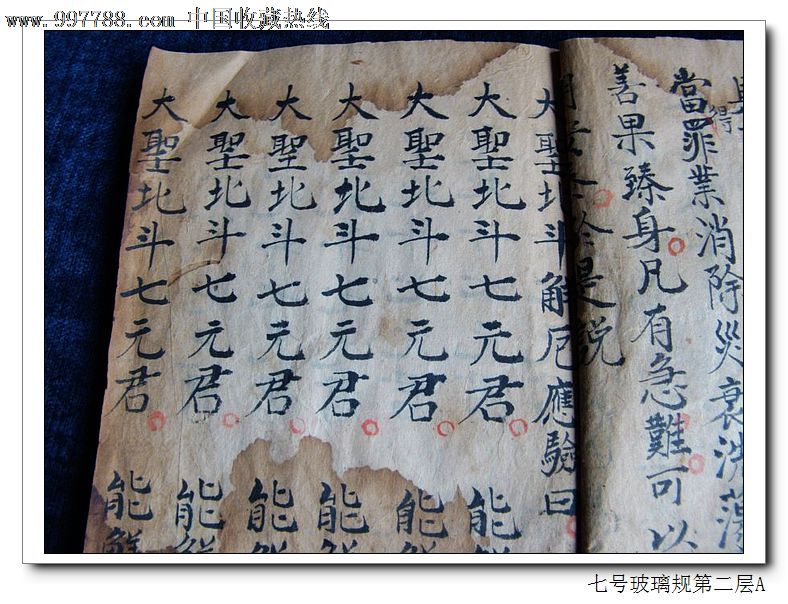 www.997788.com 中国收藏热线
得
當罪業消除災衰洗蕩
善果臻身凡有急難可以
於是説
大聖北斗解厄應驗曰
大聖北斗七元君 能解
大聖北斗七元君 能解
大聖北斗七元君 能解
大聖北斗七元君 能解
大聖北斗七元君 能解
大聖北斗七元君 能解
七号玻璃规第二层A